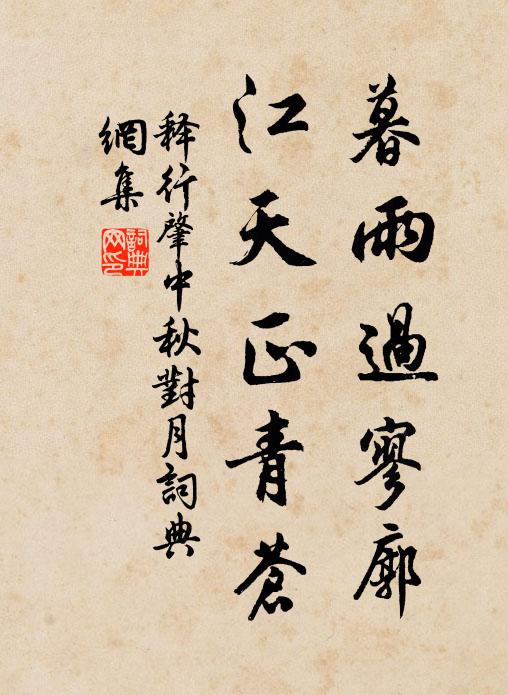 暮雨過寥廓
江天正青蒼
释行肇中秋對月詞典
網集
詞典網印